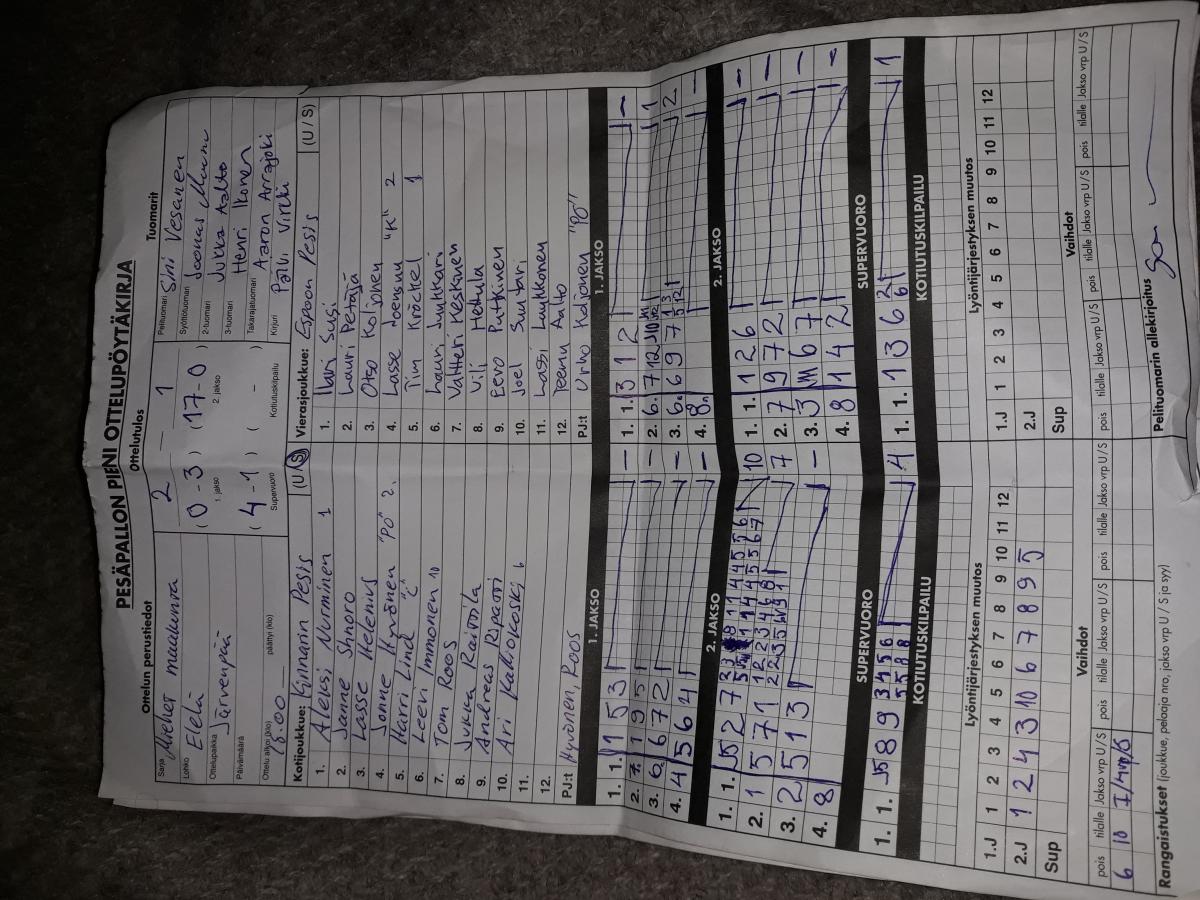 PESÄPALLON PIENI OTTELUPÖYTÄKIRJA
Ottelun perustiedot
Ottelutulos
Tuomarit
Sarja Miehet maakunta
Lohko Etelä
Ottelupaikka Järvenpää
Päivämäärä
Ottelu alkoi (klo) 16.00 päättyi (klo)
2 – 1
(0 - 3) (17 - 0)
1. jakso 2. jakso
(4 - 1) ( - )
Supervuoro Kotiutuskilpailu
Pelituomari Sini Vesanen
Syöttötuomari Joonas
2-tuomari Jukka Aalto
3-tuomari Henri Ikonen
Takarajatuomari Aaron Arrajoki
Kirjuri Päivi Virkki
Kotijoukkue: Kinnarin Pesis (U/S)
1. Aleksi Nurminen 1
2. Janne
3. Lasse Helenius
4. Jonne Hyvönen "PO" 2.
5. Harri Lind "C"
6. Leevi Immonen 10
7. Tom Roos
8. Jukka Raivola
9. Andreas Ripatti
10. Ari Kalliokoski 6
11.
12.
PJ:t Hyvönen, Roos
Vierasjoukkue: Espoon Pesis (U / S)
1. Ilari Susi
2. Lauri Petäjä
3. Otso Koljonen
4. Lasse Joensuu "K" 2
5. Tim Kröckel 1
6. Lauri Junkkari
7. Valtteri Keskanen
8. Vili Hettula
9. Eero Putkinen
10. Joel Suntari
11. Lassi Laukkonen
12. Teemu Aalto
PJ:t Urho Koljonen "PO"
1. JAKSO
1. 1. 1 5 3 –
2. 7. 1 9 5 –
3. 6. 6 7 2 –
4. 4 5 6 4 –
1. JAKSO
1. 1. 3 1 2 –
2. 6. 7 12 10 1
3. 6. 6 9 7 2
4. 8. –
2. JAKSO
1. 1. 5 2 7 10
2. 1 5 7 1 7
3. 2 5 1 3 –
4. 8
2. JAKSO
1. 1. 1 2 6 –
2. 7 9 7 2 –
3. 3 11 6 7 –
4. 8 1 4 2 –
SUPERVUORO
1. 1. 5 8 9 4
SUPERVUORO
1. 1. 1 3 6 1
KOTIUTUSKILPAILU
KOTIUTUSKILPAILU
Lyöntijärjestyksen muutos
1.J 1 2 3 4 5 6 7 8 9 10 11 12
2.J 1 2 4 3 10 6 7 8 9 5
Sup
Lyöntijärjestyksen muutos
1.J 1 2 3 4 5 6 7 8 9 10 11 12
2.J
Sup
Vaihdot
pois tilalle Jakso vrp U/S pois tilalle Jakso vrp U/S pois tilalle Jakso vrp U/S
6 10
Vaihdot
pois tilalle Jakso vrp U/S pois tilalle Jakso vrp U/S pois tilalle Jakso vrp U/S
Rangaistukset (joukkue, pelaaja nro, jakso vrp U / S ja syy)
Pelituomarin allekirjoitus